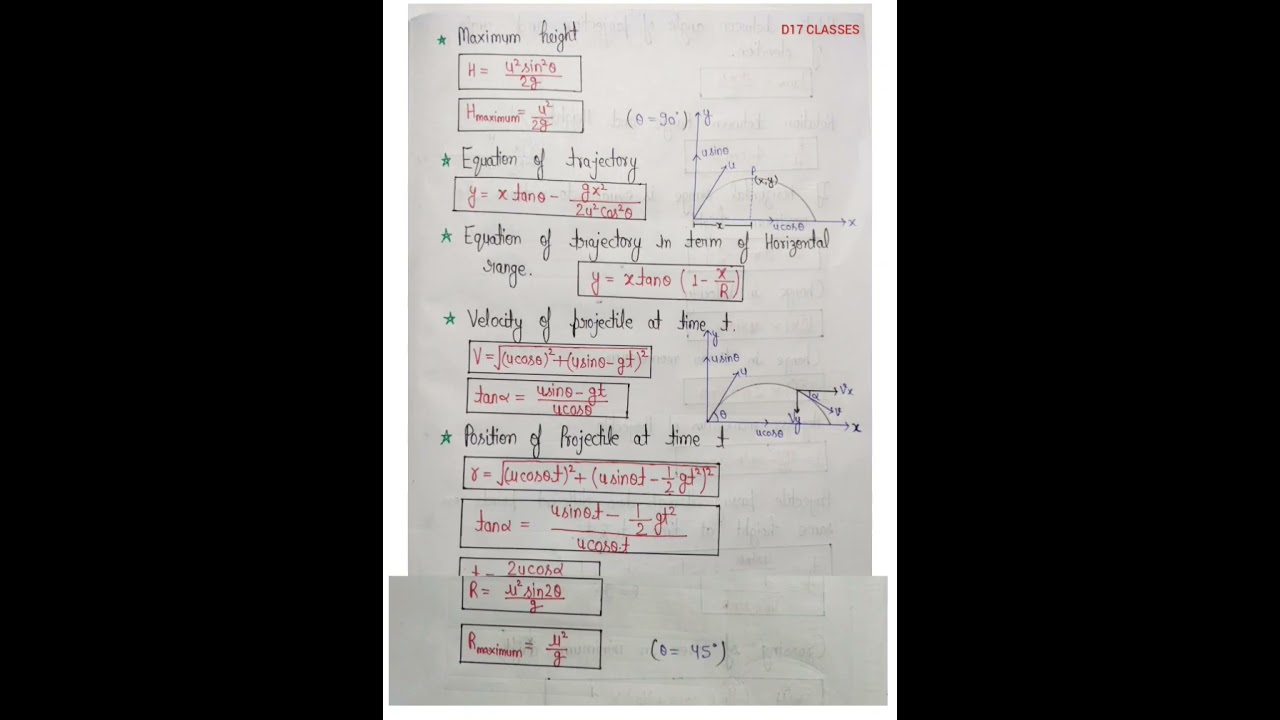 D17 CLASSES
★ Maximum height
H = u²sin²θ/2g
Hmaximum = u²/2g (θ = 90°)
y
usinθ
u
P
(x,y)
x
ucosθ
x
★ Equation of trajectory
y = x tanθ - gx²/2u²cos²θ
★ Equation of trajectory in term of Horizental
range. y = x tanθ (1 - x/R)
★ Velocity of projectile at time t.
V = √(ucosθ)² + (usinθ - gt)²
tanα = usinθ - gt/ucosθ
y
usinθ
u
θ
ucosθ
Vx
α
v
Vy
x
★ Position of Projectile at time t
r = √(ucosθt)² + (usinθt - 1/2 gt²)²
tanα = usinθ.t - 1/2 gt²/ucosθ.t
2ucosα
R = u²sin2θ/g
Rmaximum = u²/g (θ = 45°)